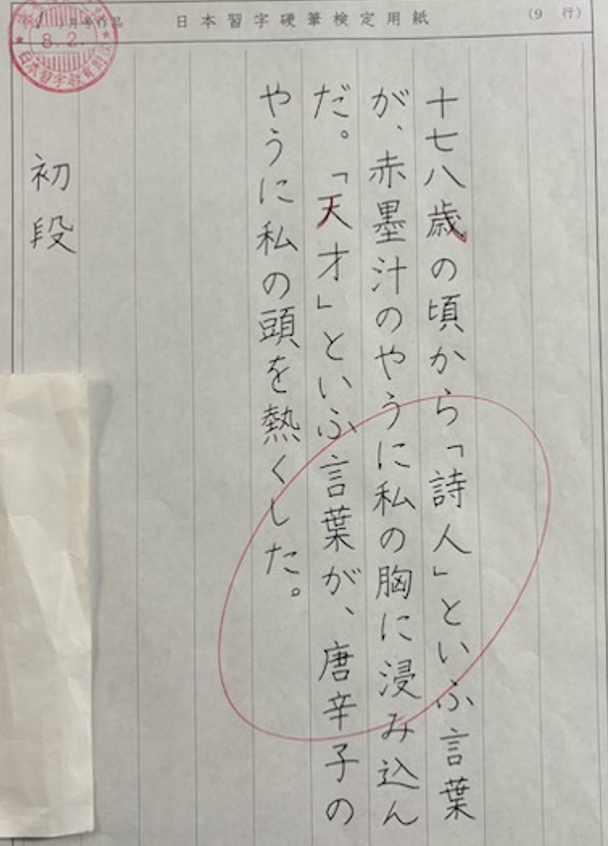 日本習字硬筆検定用紙
(9 行)
十七八歳の頃から「詩人」といふ言葉
が、赤墨汁のやうに私の胸に浸み込ん
だ。「天才」といふ言葉が、唐辛子の
やうに私の頭を熱くした。
初段
8.2.
日本習字教育財団